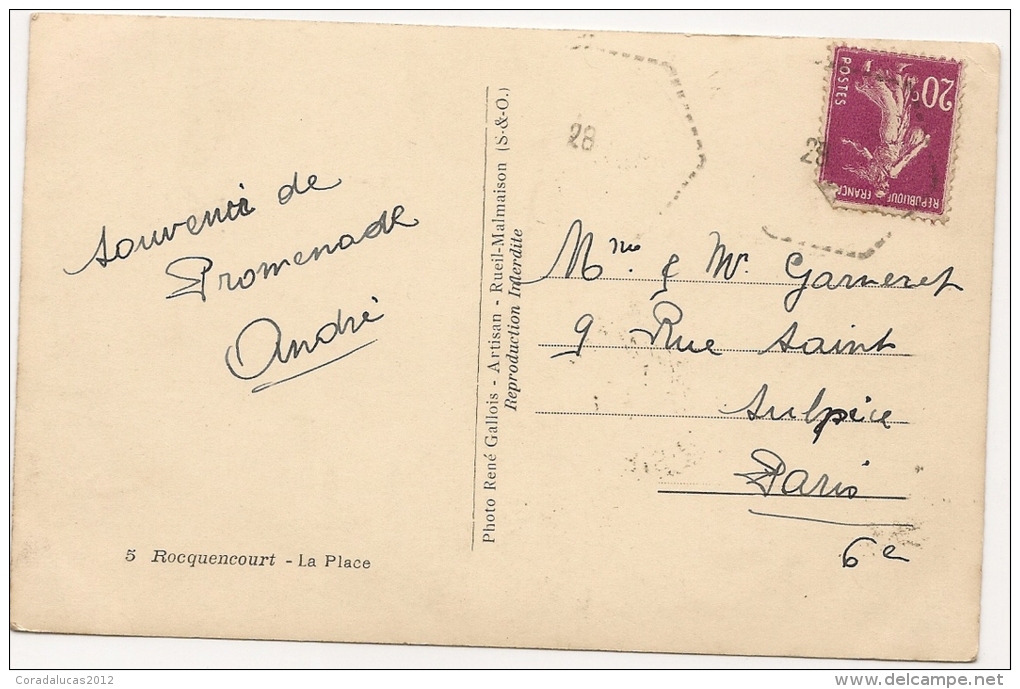 Souvenir de
Promenade
André
5 Rocquencourt - La Place
Photo René Gallois - Artisan - Rueil-Malmaison (S.&O.)
Reproduction Interdite
28
28
20c
POSTES
REPUBLIQUE FRANCAISE
Mme & Mr Garneret
9 Rue Saint
Sulpice
Paris
6e
Coradalucas2012
delcampe.net